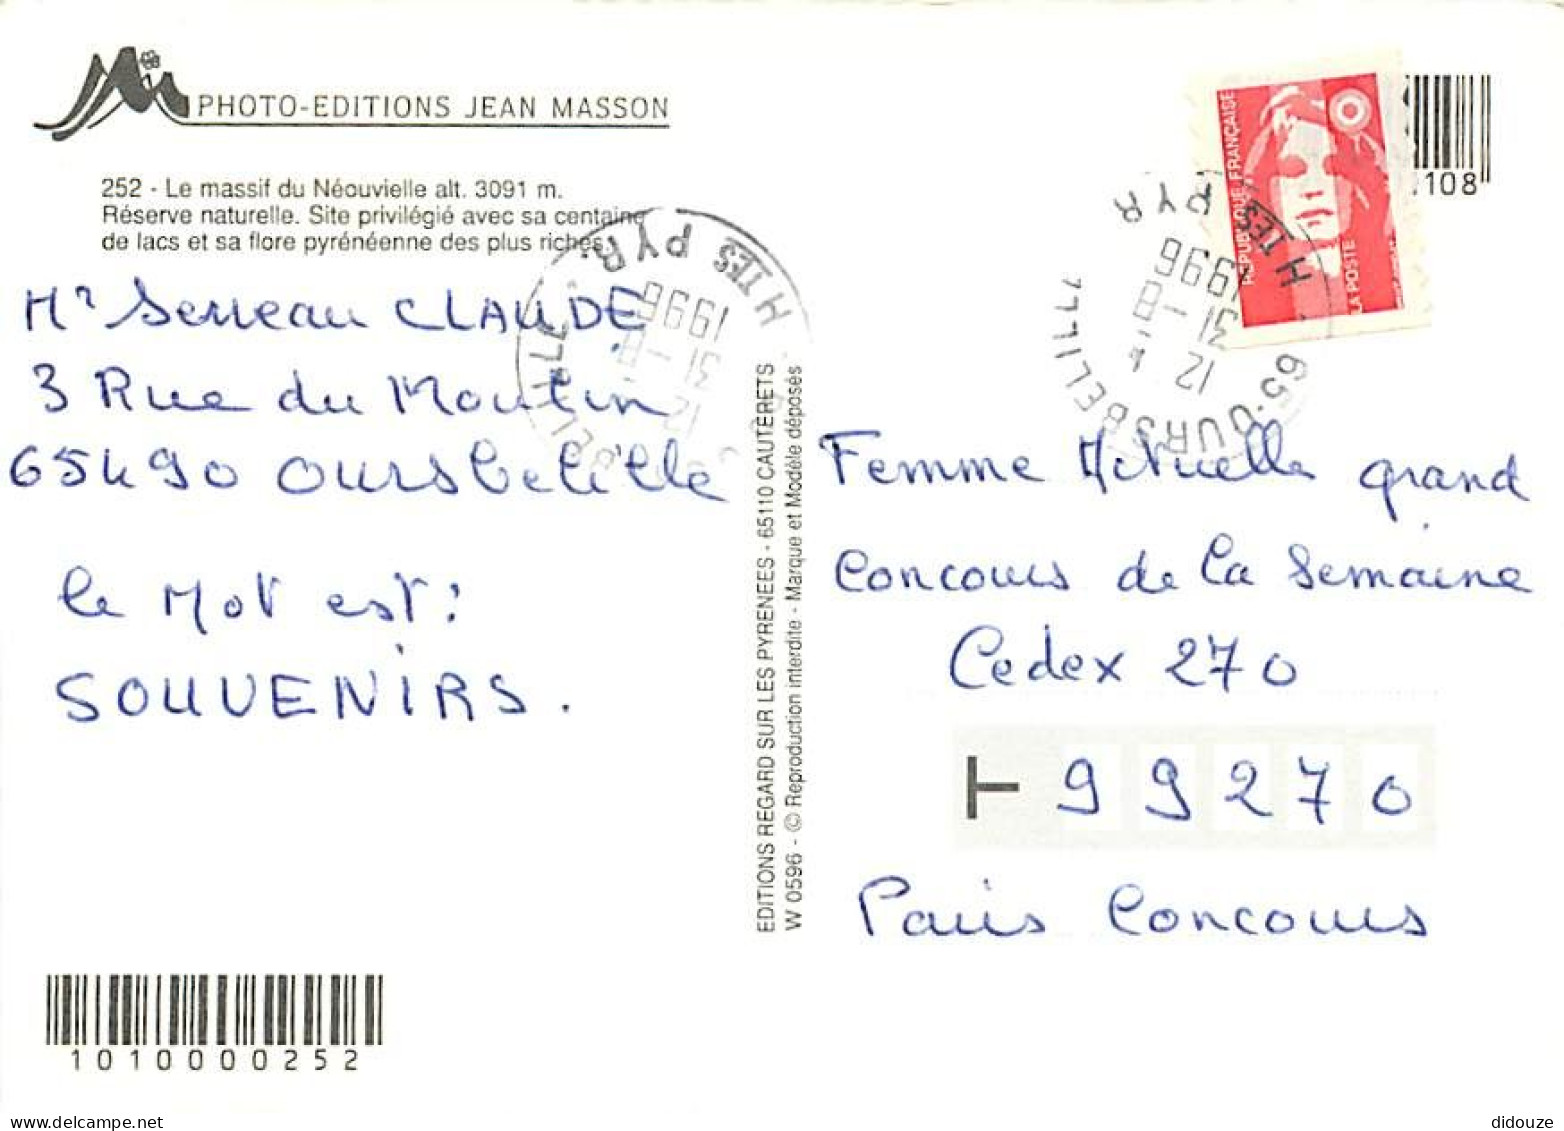 PHOTO-EDITIONS JEAN MASSON
252 - Le massif du Néouvielle alt. 3091 m.
Réserve naturelle. Site privilégié avec sa centaine
de lacs et sa flore pyrénéenne des plus riches.
Mr Serreau CLAUDE
3 Rue du Moulin
65490 Oursbelille
le Mot est :
SOUVENIRS.
1010000252
EDITIONS REGARD SUR LES PYRENEES - 65110 CAUTERETS
W 0596 - © Reproduction interdite - Marque et Modèle déposés
HTES PYR.
12
31-8
1996
REPUBLIQUE FRANÇAISE
LA POSTE
108
65-OURSBELILLE
HTES PYR
12
31-8
1996
Femme Actuelle grand
Concours de la Semaine
Cedex 270
99270
Paris Concours
didouze